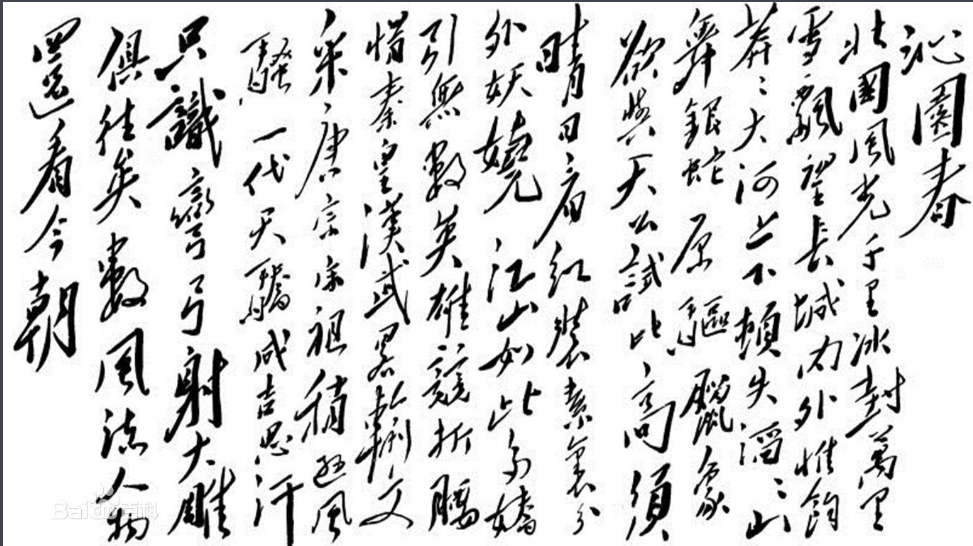 沁園春
北國風光千里冰封萬里
雪飄望長城内外惟餘
莽〻大河上下頓失滔〻山
舞銀蛇原驅臘象
欲與天公試比高須
晴日看紅裝素裹分
外妖嬈江山如此多嬌
引無數英雄競折腰
惜秦皇漢武畧輸文
采唐宗宋祖稍遜風
騷一代天驕成吉思汗
只識彎弓射大雕
俱往矣數風流人物
還看今朝
Bai百科